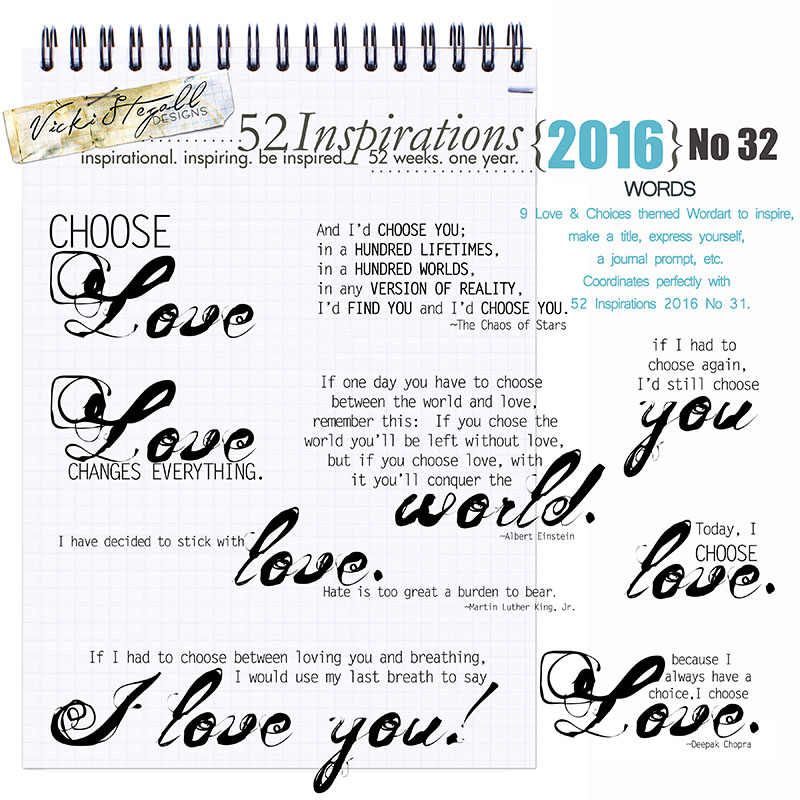 Vicki Stegall
DESIGNS
52 Inspirations {2016} No 32
inspirational. inspiring. be inspired. 52 weeks. one year.
WORDS
9 Love & Choices themed Wordart to inspire,
make a title, express yourself,
a journal prompt, etc.
Coordinates perfectly with
52 Inspirations 2016 No 31.
CHOOSE
Love
And I'd CHOOSE YOU;
in a HUNDRED LIFETIMES,
in a HUNDRED WORLDS,
in any VERSION OF REALITY,
I'd FIND YOU and I'd CHOOSE YOU.
~The Chaos of Stars
if I had to
choose again,
I'd still choose
you
Love
CHANGES EVERYTHING.
If one day you have to choose
between the world and love,
remember this: If you chose the
world you'll be left without love,
but if you choose love, with
it you'll conquer the
world.
~Albert Einstein
I have decided to stick with
love.
Hate is too great a burden to bear.
~Martin Luther King, Jr.
Today, I
CHOOSE
love.
If I had to choose between loving you and breathing,
I would use my last breath to say
I love you!
because I
always have a
choice,I choose
Love.
~Deepak Chopra